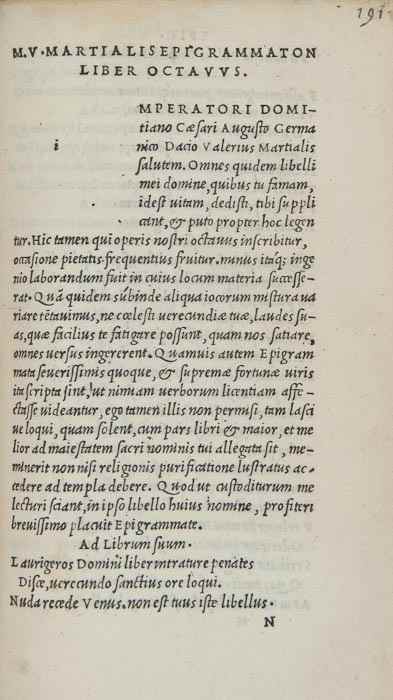 191
M.V. MARTIALIS EPIGRAMMATON
LIBER OCTAVVS.
MPERATORI DOMI-
tiano Cæsari Augusto Germa
i nico Dacio Valerius Martialis
salutem. Omnes quidem libelli
mei domine, quibus tu famam,
idest uitam, dedisti, tibi suppli
cant, & puto propter hoc legen
tur. Hic tamen qui operis nostri octauus inscribitur,
occasione pietatis frequentius fruitur. minus itaq; inge
nio laborandum fuit in cuius locum materia successe-
rat. Quã quidem subinde aliqua iocorum mistura ua
riare tẽtauimus, ne cœlesti uerecundiæ tuæ, laudes su-
as, quæ facilius te fatigare possunt, quam nos satiare,
omnes uersus ingererent. Quamuis autem Epigram
mata seuerissimis quoque, & supremæ fortunæ uiris
ita scripta sint, ut nimiam uerborum licentiam affe-
ctasse uideantur, ego tamen illis non permisi, tam lasci
ue loqui, quam solent, cum pars libri & maior, et me
lior ad maiestatem sacri nominis tui allegata sit, me-
minerit non nisi religionis purificatione lustratus ac-
cedere ad templa debere. Quod ut custoditurum me
lecturi sciant, in ipso libello huius nomine, profiteri
breuissimo placuit Epigrammate.
Ad Librum suum.
Laurigeros Domini liber intrature penates
Disce, uerecundo sanctius ore loqui.
Nuda recede Venus. non est tuus iste libellus.
N